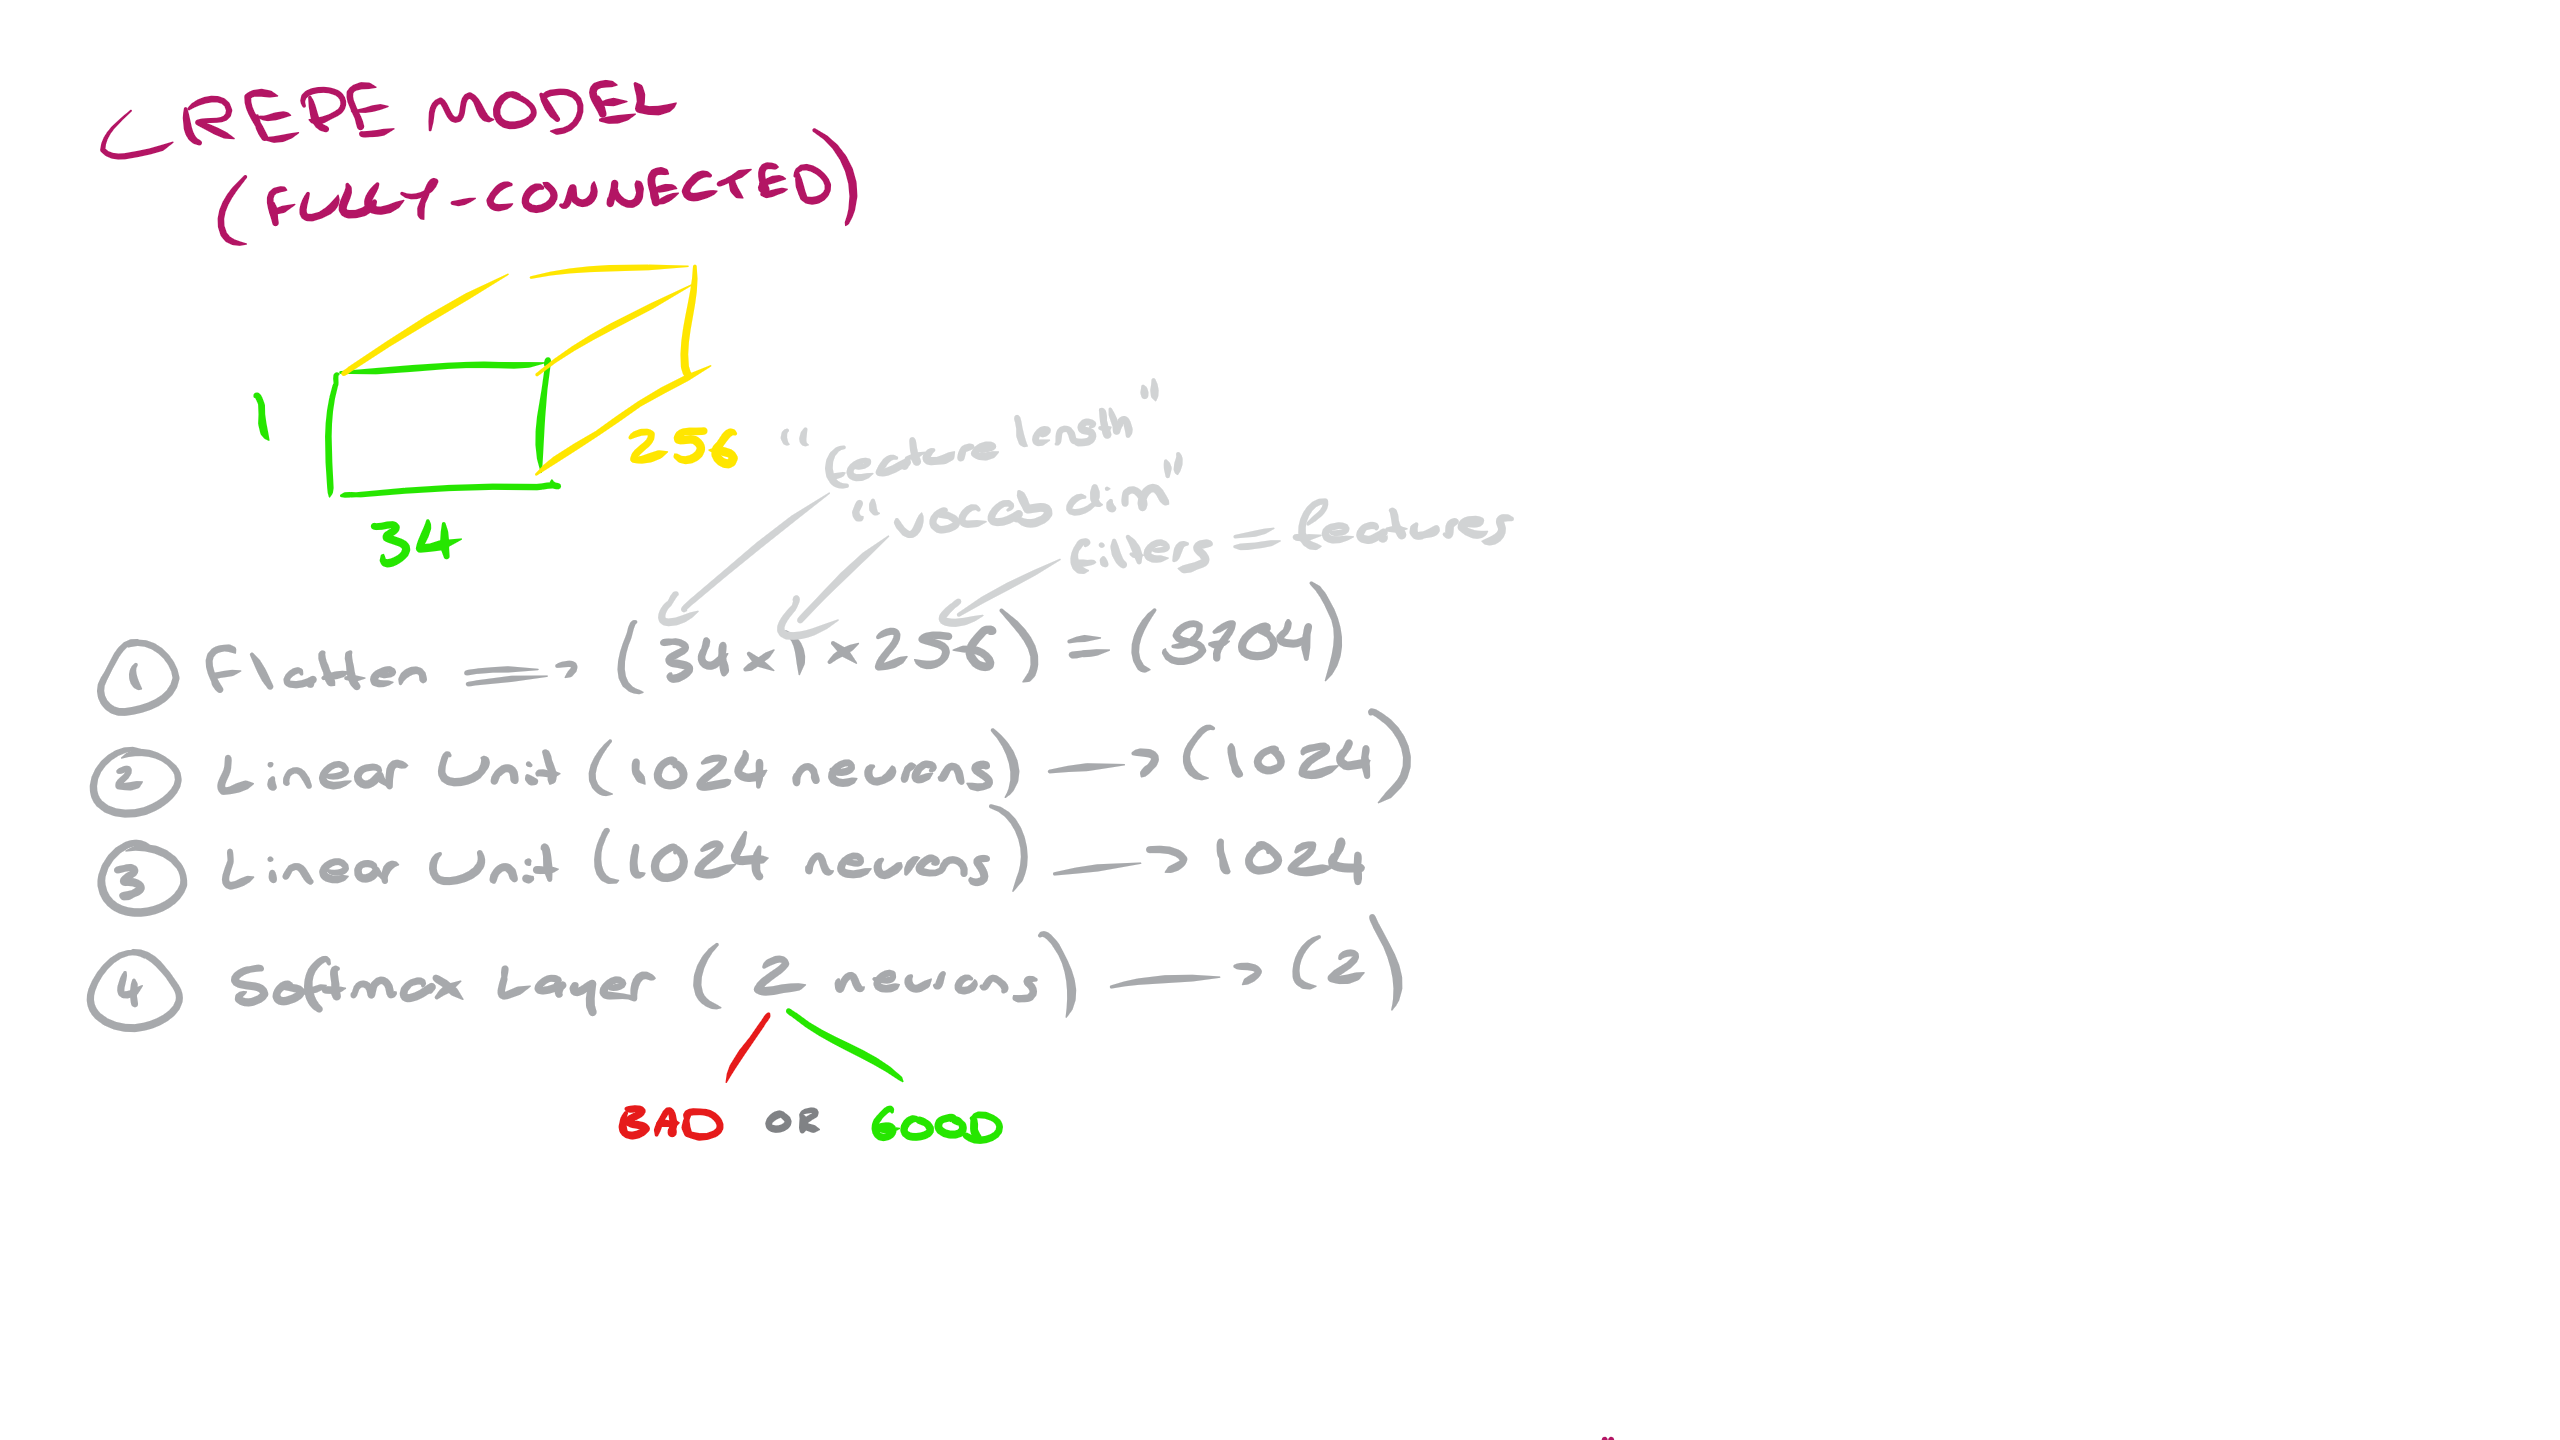 CREPE MODEL
(FULLY-CONNECTED)
1
256
34
"feature length"
"vocab dim"
filters = features
① Flatten ⟹ (34x1x256) = (8704)
② Linear Unit (1024 neurons) → (1024)
③ Linear Unit (1024 neurons) → 1024
④ Softmax Layer (2 neurons) → (2)
BAD OR GOOD